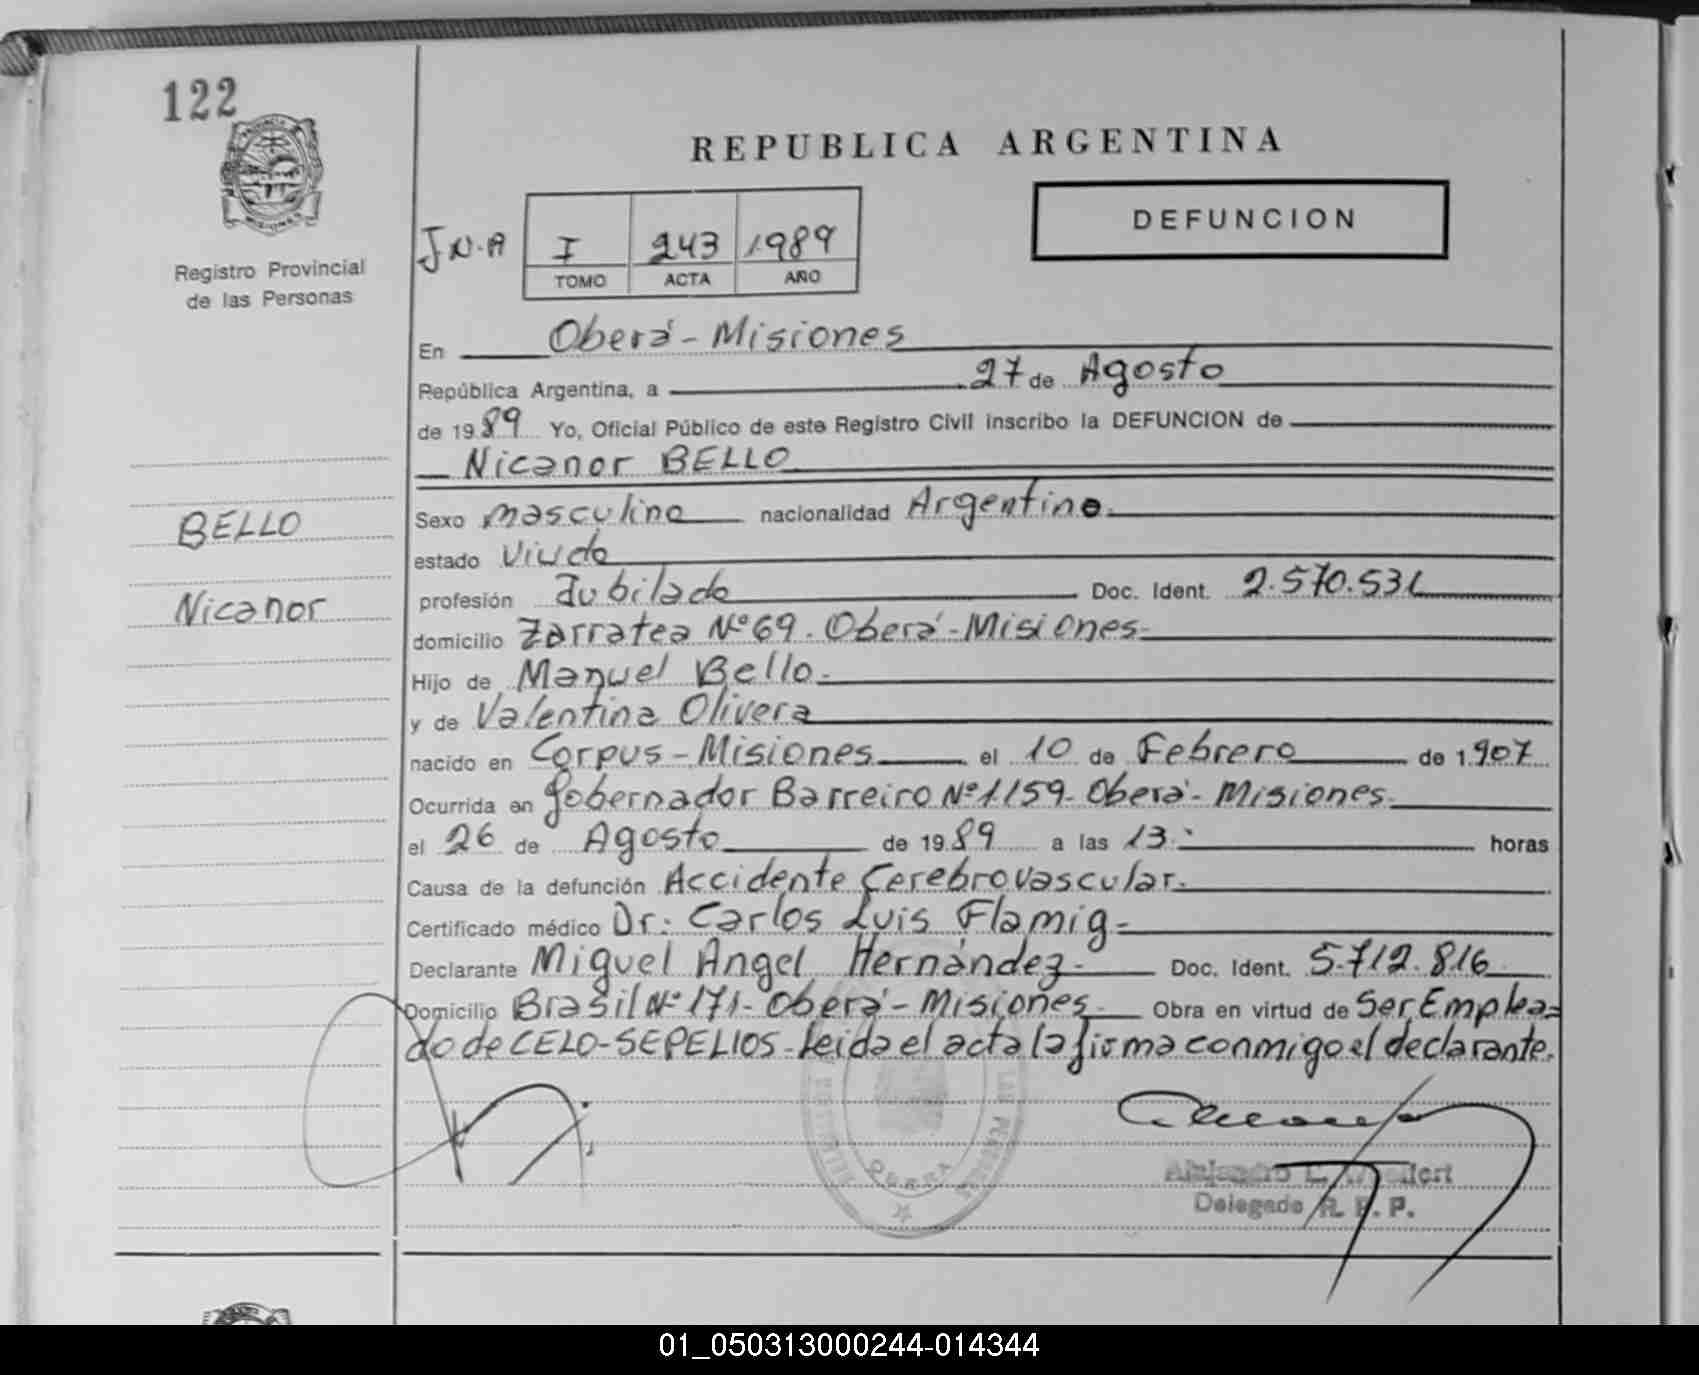 122
PROVINCIA DE
MISIONES
Registro Provincial
de las Personas
BELLO
Nicanor
REPUBLICA ARGENTINA
DEFUNCION
I 243 1989
TOMO ACTA AÑO
En Oberá - Misiones
República Argentina, a 27 de Agosto
de 1989 Yo, Oficial Público de este Registro Civil inscribo la DEFUNCION de
Nicanor BELLO
Sexo masculino nacionalidad Argentino.
estado Viudo
profesión Jubilado Doc. Ident. 2.570.531
domicilio Zarratea Nº 69. Oberá - Misiones-
Hijo de Manuel Bello.
y de Valentina Olivera
nacido en Corpus - Misiones el 10 de Febrero de 1907
Ocurrida en Gobernador Barreiro Nº 1159- Oberá - Misiones.
el 26 de Agosto de 1989 a las 13.- horas
Causa de la defunción Accidente Cerebrovascular.
Certificado médico Dr. Carlos Luis Flamig -
Declarante Miguel Angel Hernández - Doc. Ident. 5.712.816
Domicilio Brasil Nº 171- Oberá - Misiones- Obra en virtud de Ser Emplea=
do de CELO-SEPELIOS - Leida el acta la firma conmigo el declarante.
OBERA
Alejandro L.
Delegado R. P. P.
01_050313000244-014344